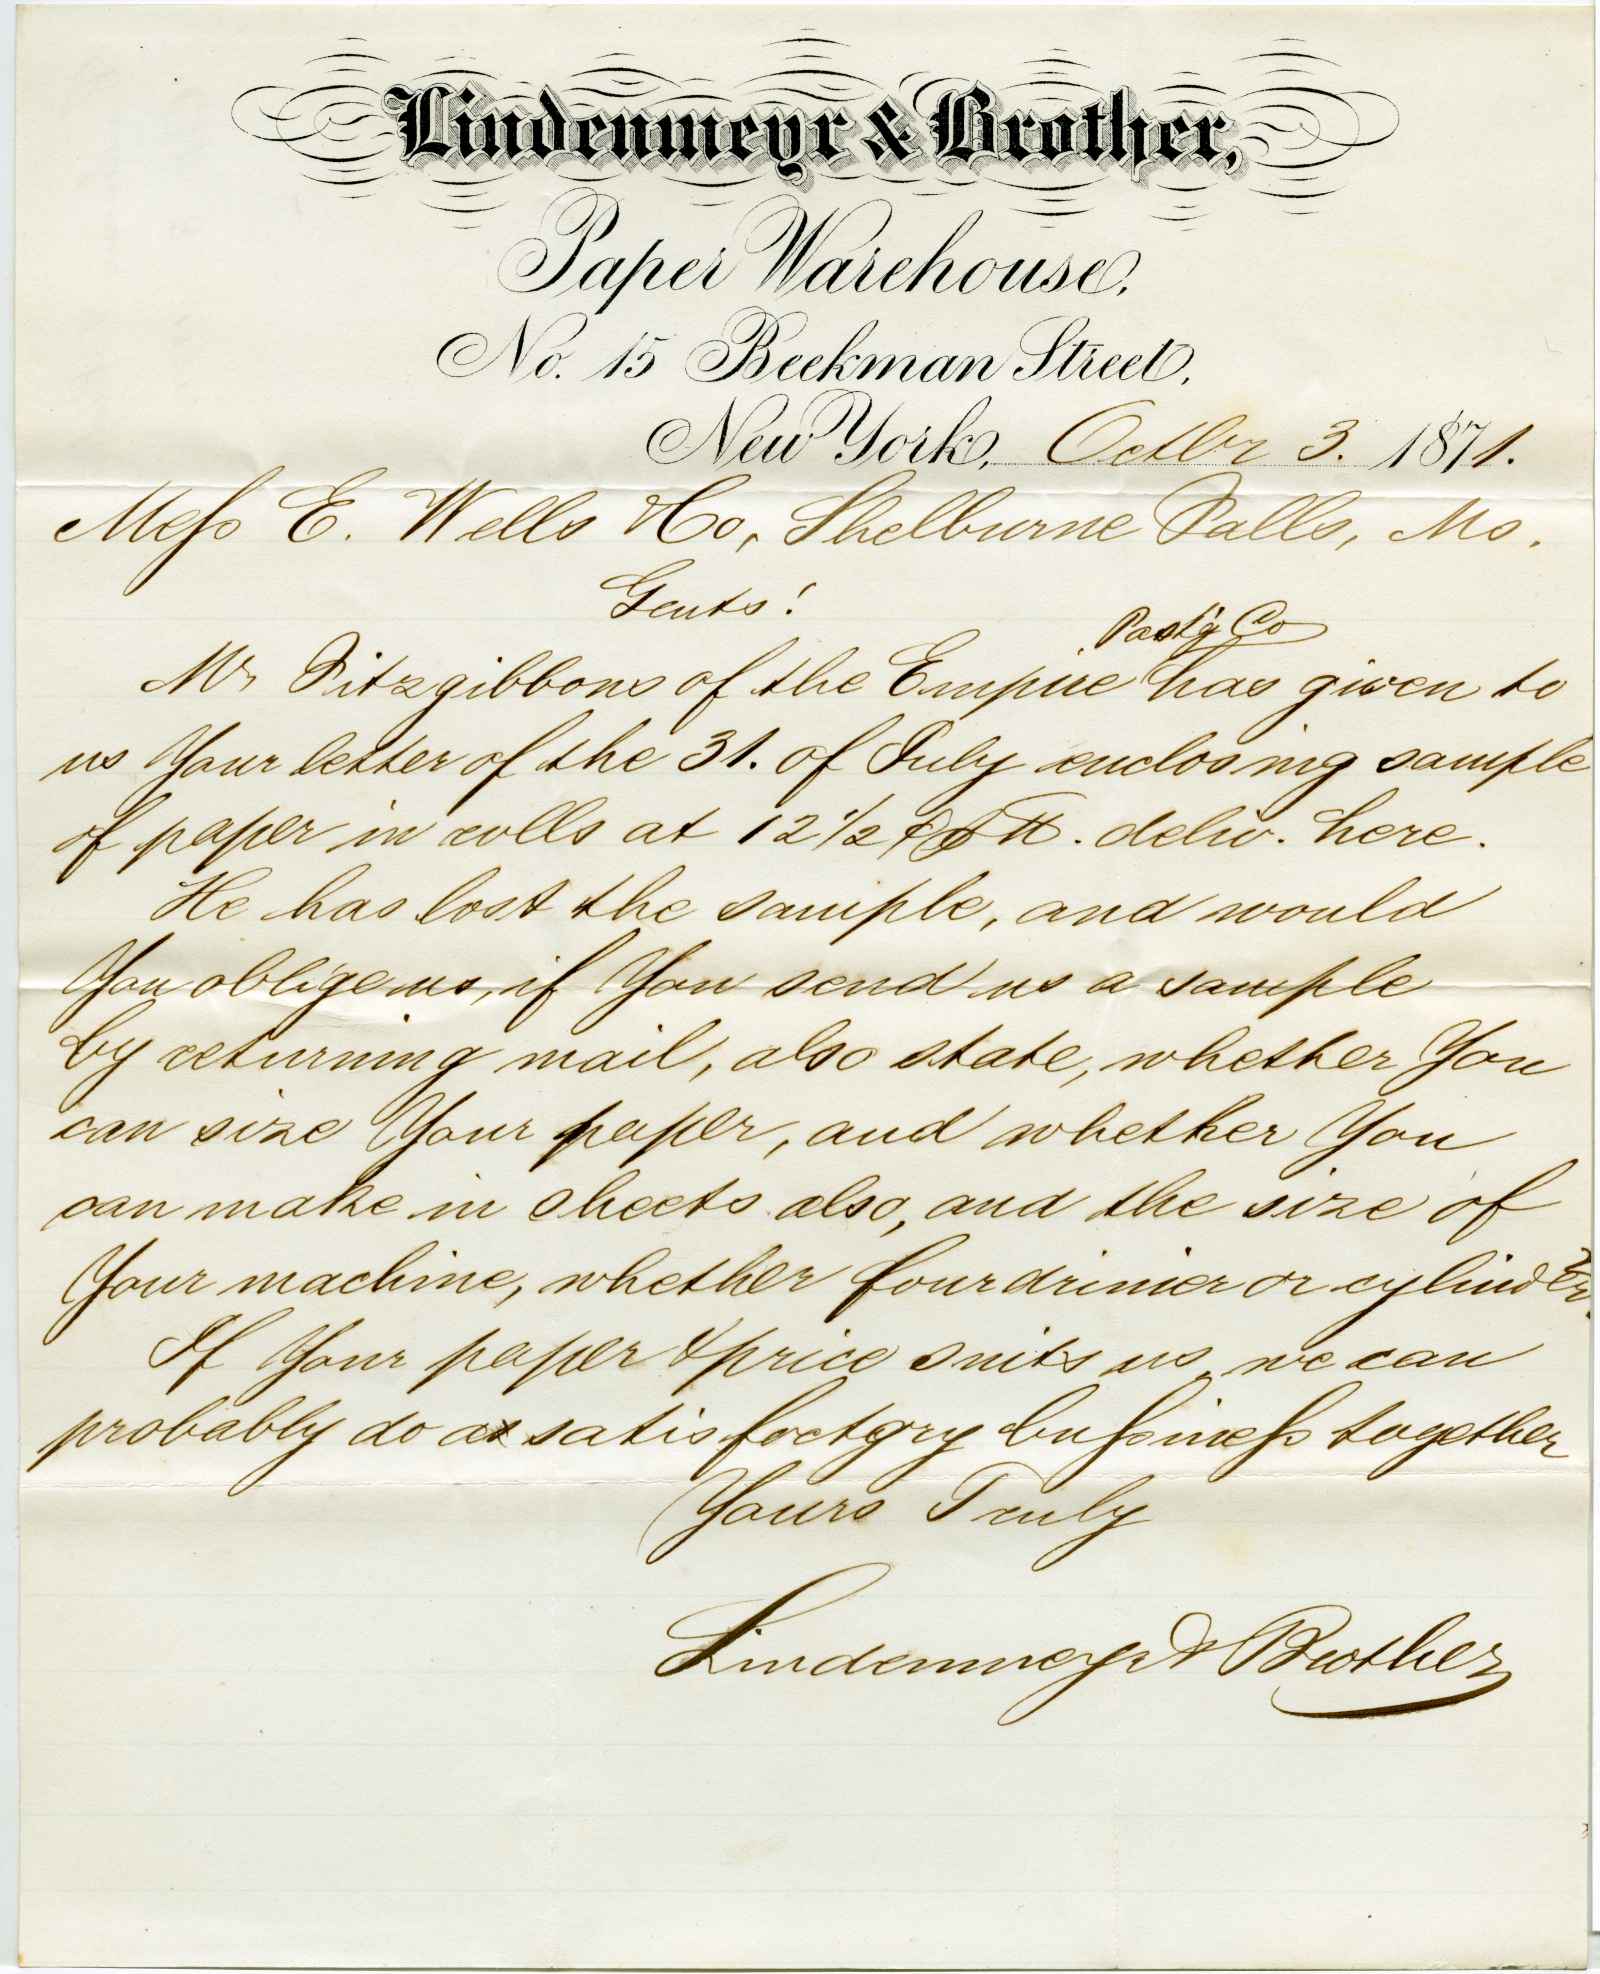 Lindenmeyr & Brother,
Paper Warehouse,
No. 15 Beekman Street,
New York, Octbr 3. 1871.
Mess E. Wells & Co, Shelburne Falls, Ms.
Gents!
Past'g Co
Mr Fitzgibbons of the Empire has given to
us Your letter of the 31. of July enclosing sample
of paper in rolls at 12 1/2 ¢ ℔. deliv. here.
He has lost the sample, and would
You oblige us, if You send us a sample
by returning mail, also state, whether You
can size Your paper, and whether You
can make in sheets also, and the size of
Your machine, whether fourdrinier or cylinder.
If Your paper & price suits us, we can
probably do a satisfactory bussiness together
Yours Truly
Lindenmeyr & Brother